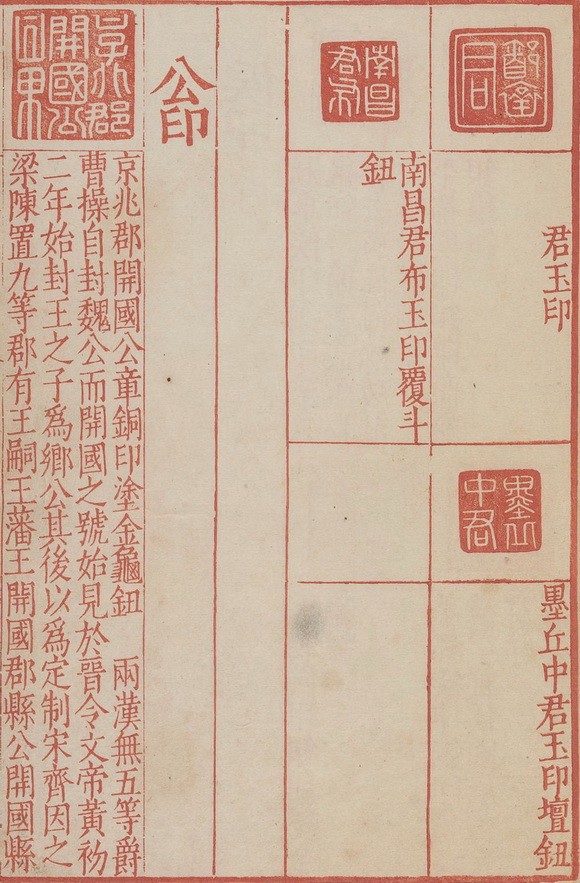 君玉印
墨丘
中君
墨丘中君玉印壇鈕
南昌
君布
南昌君布玉印覆斗
鈕
公印
京兆郡
開國公
京兆郡開國公章銅印塗金龜鈕　兩漢無五等爵
曹操自封魏公而開國之號始見於晉令文帝黃初
二年始封王之子爲鄉公其後以爲定制宋齊因之
梁陳置九等郡有王嗣王藩王開國郡縣公開國縣